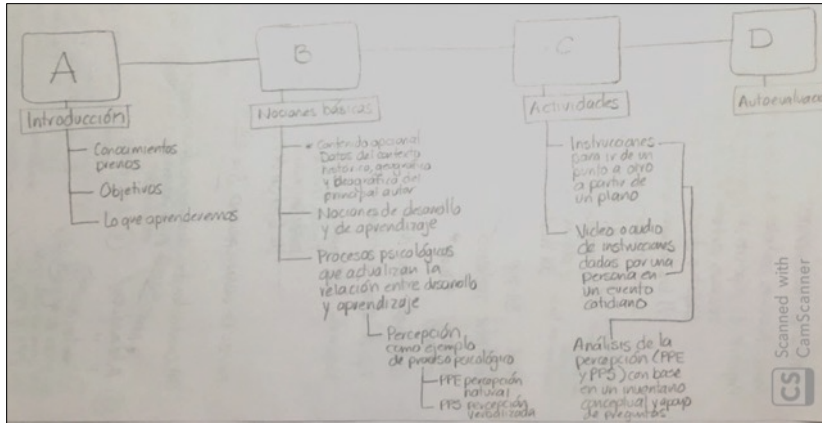 A
Introducción
Conocimientos
previos
Objetivos
Lo que aprenderemos
B
Nociones básicas
* Contenido opcional
Datos del contexto
histórico, geográfico
y biográfico del
principal autor
Nociones de desarrollo
y de aprendizaje
Procesos psicológicos
que actualizan la
relación entre desarrollo
y aprendizaje
Percepción
como ejemplo
de proceso psicológico
PPE percepción
natural
PPS percepción
verbalizada
C
Actividades
Instrucciones
para ir de un
punto a otro
a partir de
un plano
Video o audio
de instrucciones
dadas por una
persona en
un evento
cotidiano
Análisis de la
percepción (PPE
y PPS) con base
en un inventario
conceptual y apoyo
de preguntas
D
Autoevaluac
CS Scanned with
CamScanner